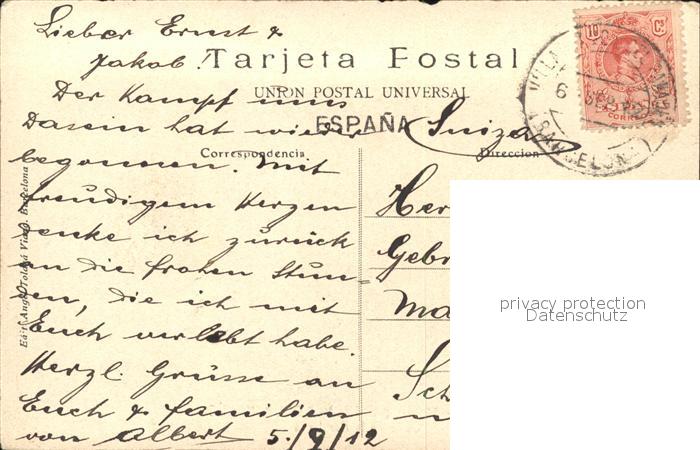 Lieber Ernst &
Jakob!
Tarjeta Postal
UNIÓN POSTAL UNIVERSAL
ESPAÑA
Correspondencia
Dirección
Der Kampf ums
Dasein hat wieder
begonnen. Mit
freudigem Herzen
denke ich zurück
an die frohen Stun-
den, die ich mit
Euch verlebt habe.
Herzl. Grüsse an
Euch & familien
von Albert 5./9/12
Suiza
Her
Gebr
Ma
Sch
10 Cs
CORREOS
BARCELONA
privacy protection
Datenschutz